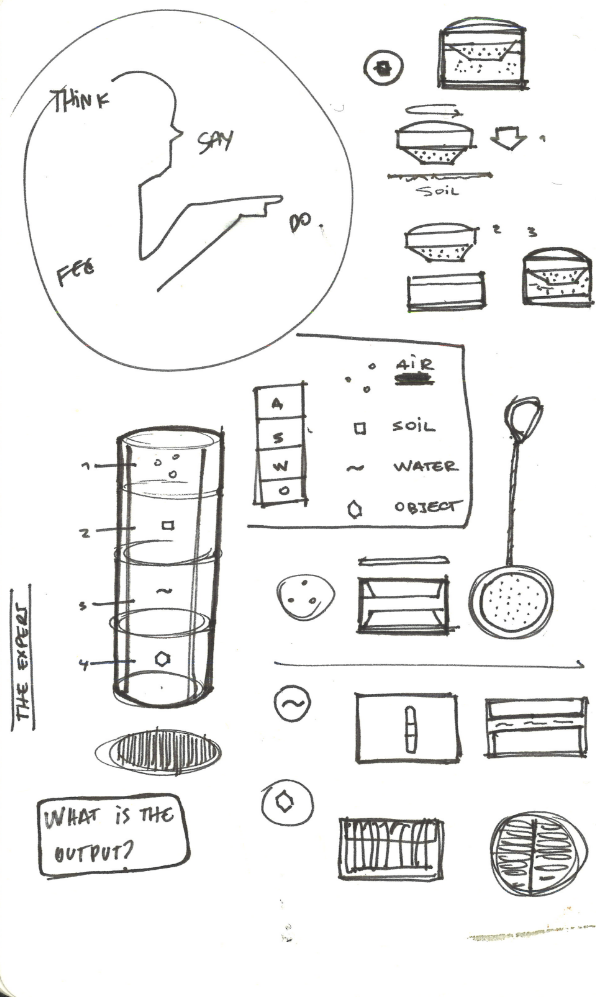 THINK
SAY
DO.
FEE
1
SOIL
2 3
AIR
A
S
W
O
SOIL
WATER
OBJECT
1
2
3
4
THE EXPERT
WHAT IS THE
OUTPUT?